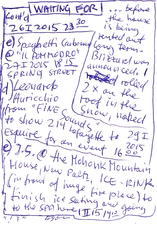 Cont'd WAITING FOR
26 I 2015 23:30
c) Spaghetti Carbonara
@ "IL POMODORO"
2 I 2015 18:15
SPRING STREET
d) Leonardo
Auricchio
from "FINE
to show 214 Lafayette to 29 I
Esquire for an event 16:00 2015
e) J.S. @ the Mohonk Mountain
House, New Paltz, ICE-RINK
(in front of huge fire place) to
finish ice skating and going
to the SPA
1 II 15
... before
the house
is being
rented out
long-term.
rolled
2x on the
roof in the
snow, naked